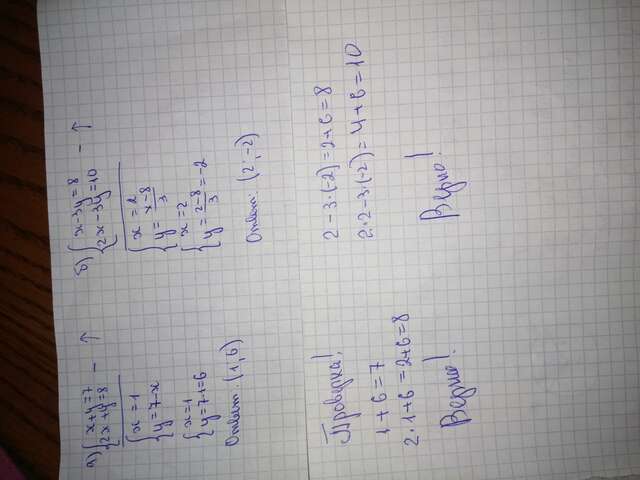 а) {x+y=7
{2x+y=8 - ↑
{x=1
{y=7-x
{x=1
{y=7-1=6
Ответ: (1,6)
б) {x-3y=8
{2x-3y=10 - ↑
{x=2
{y=x-8/3
{x=2
{y=2-8/3=-2
Ответ: (2;-2)
Проверка!
1+6=7
2·1+6=2+6=8
Верно!
2-3·(-2)=2+6=8
2·2-3·(-2)=4+6=10
Верно!